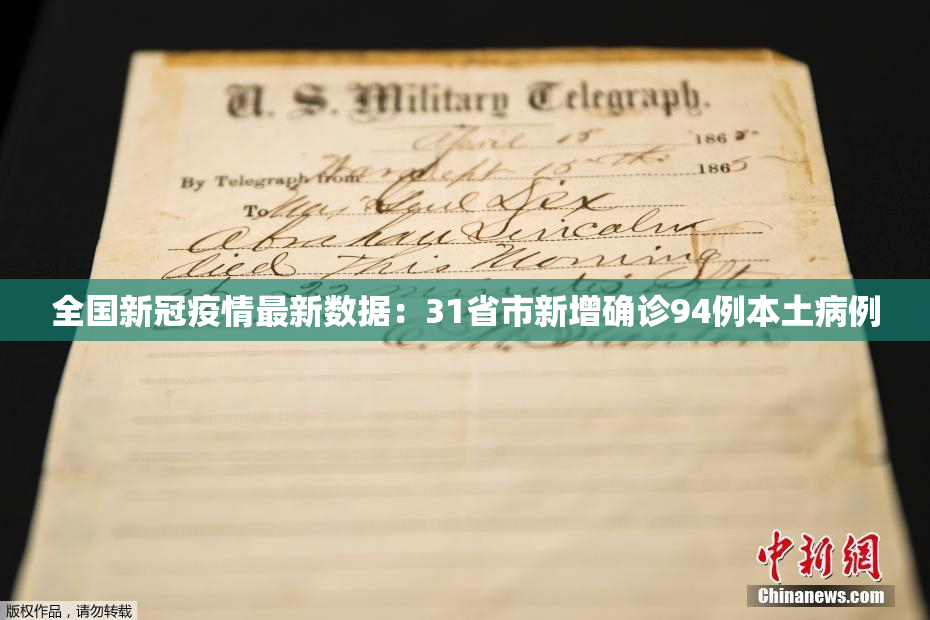 U. S. Military Telegraph.
April 15 1865
By Telegraph from War Dept 15th 1865
To Maj Genl Dix
Abraham Lincoln
died This Morning
at 22 minutes after
全国新冠疫情最新数据：31省市新增确诊94例本土病例
E. M. Stanton
中新网
Chinanews.com
版权作品，请勿转载